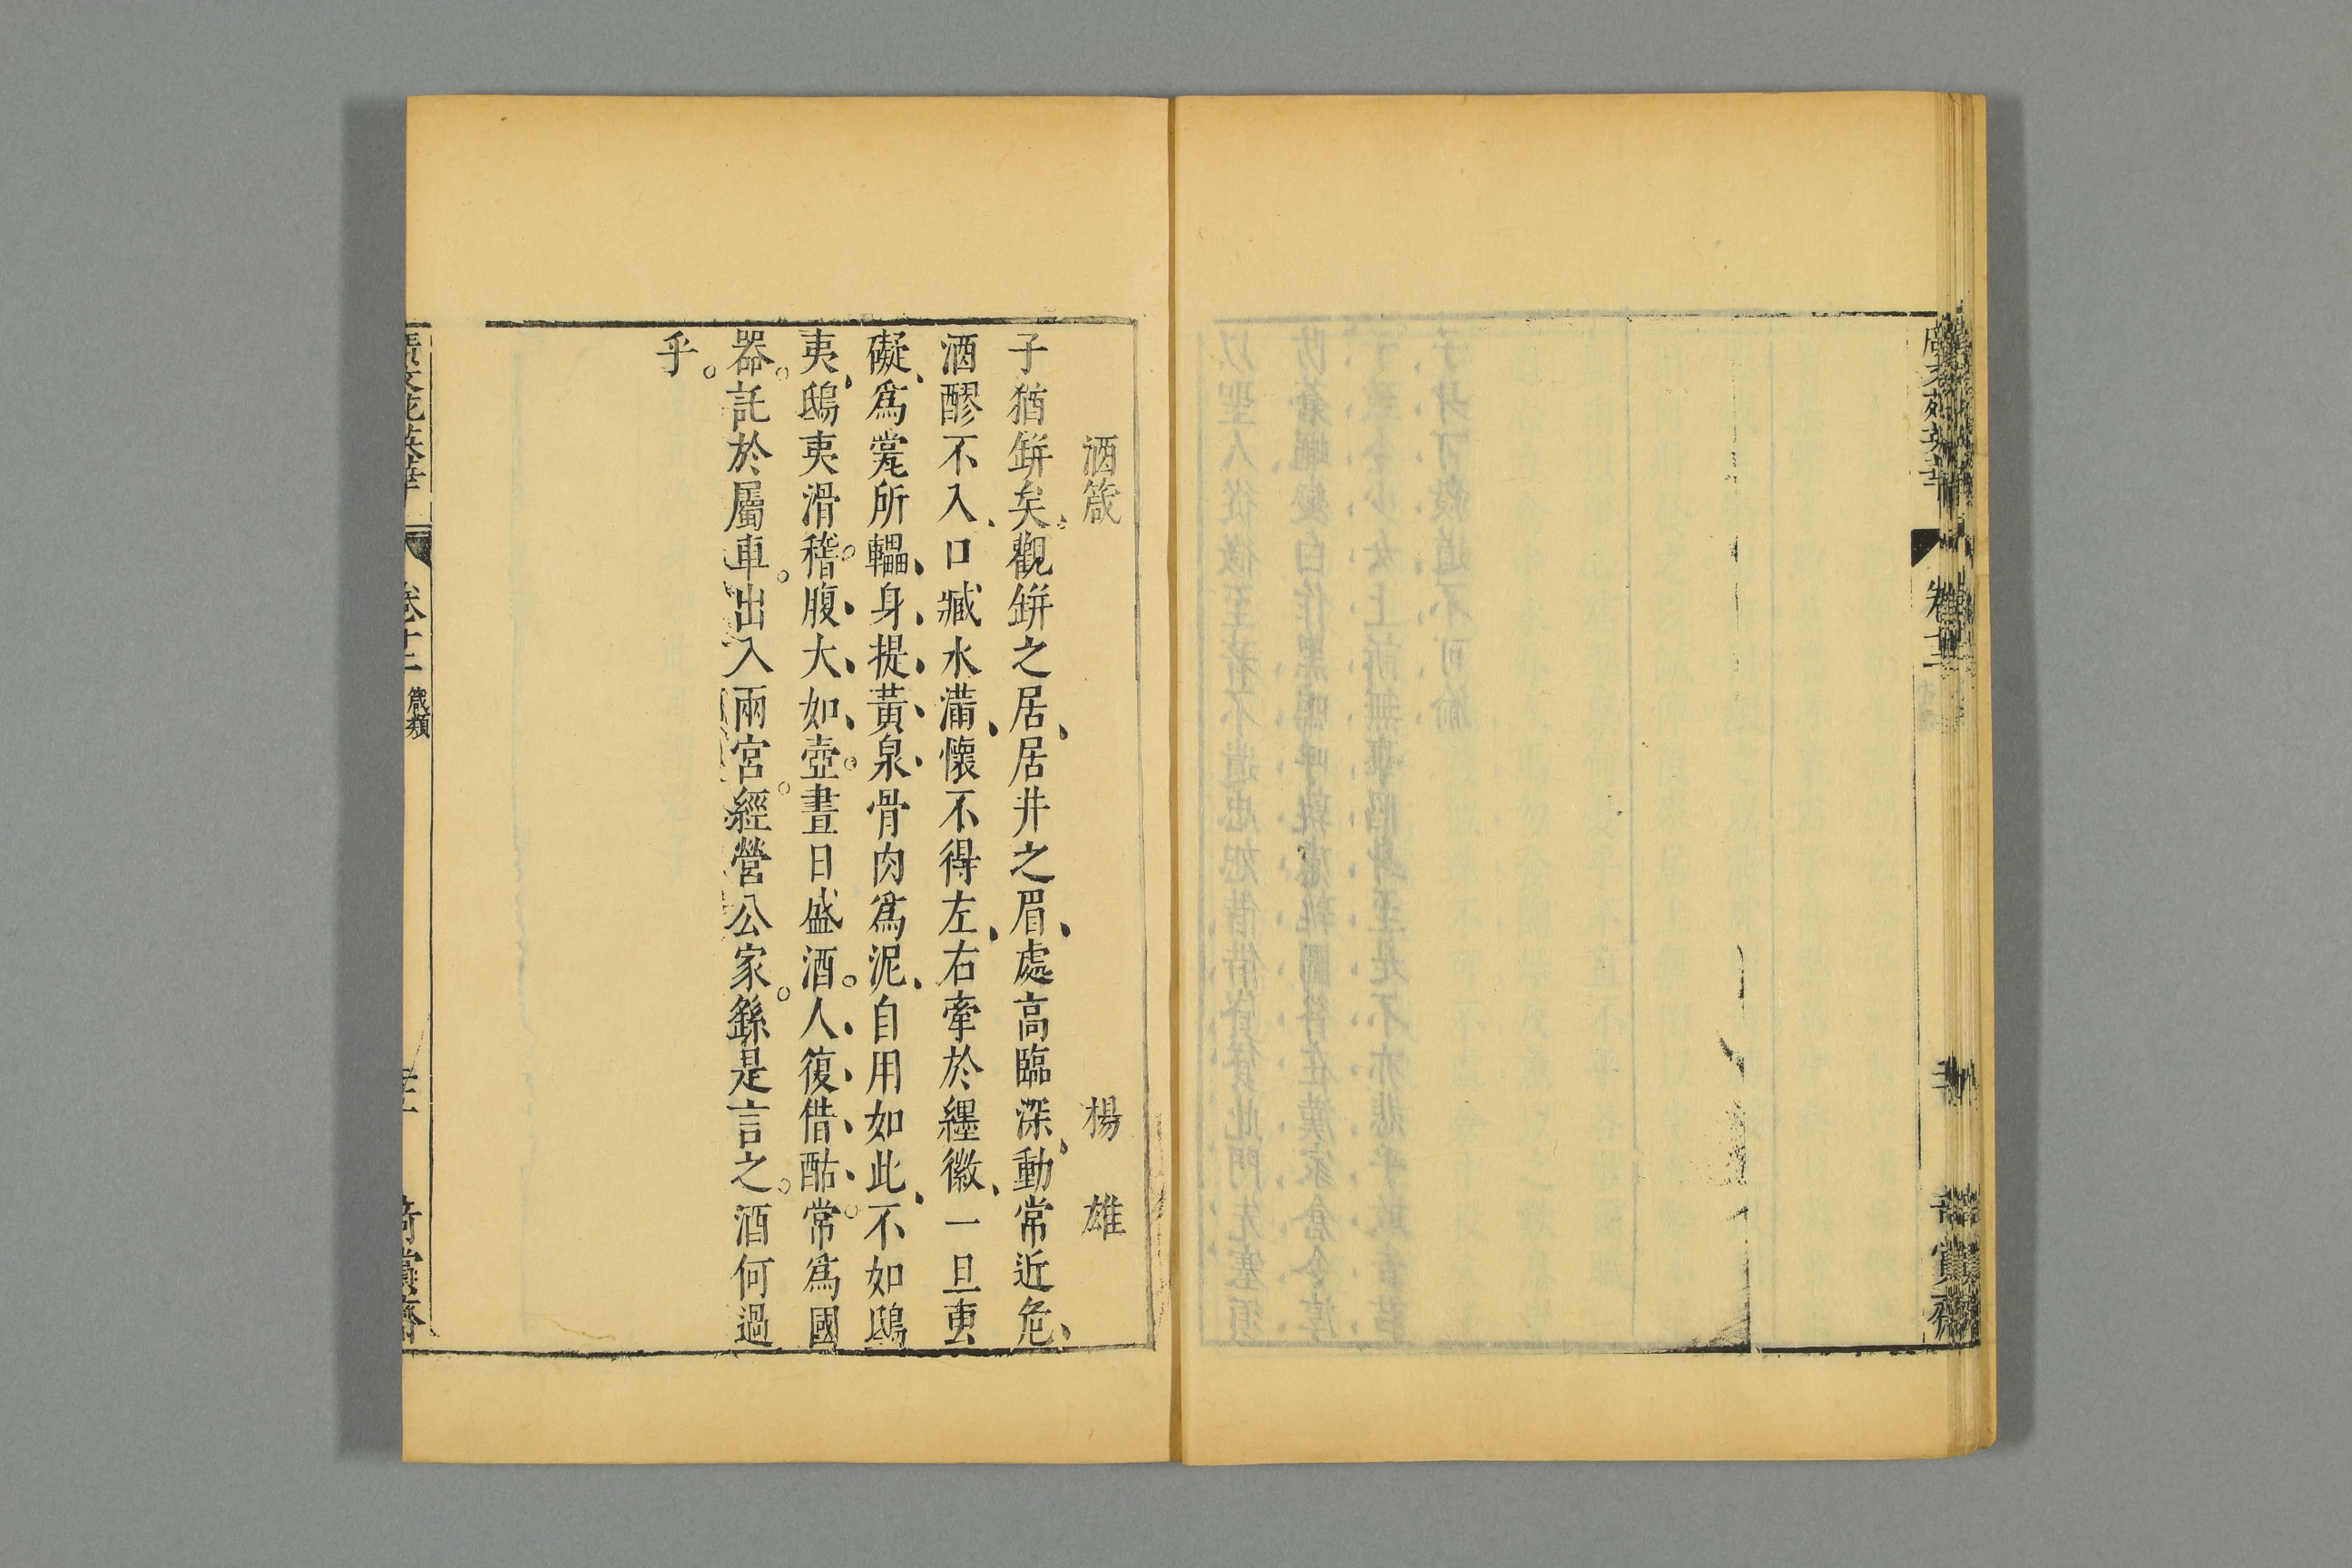 廣文苑英華 卷十二
賞齋
酒箴 楊雄
子猶缾矣觀缾之居居井之眉處高臨深動常近危
酒醪不入口臧水滿懷不得左右牽於纆徽一旦叀
礙為瓽所轠身提黃泉骨肉為泥自用如此不如鴟
夷鴟夷滑稽腹大如壺晝日盛酒人復借酤常為國
器託於屬車出入兩宮經營公家繇是言之酒何過
乎
廣文苑英華 卷十二 箴類 奇賞齋